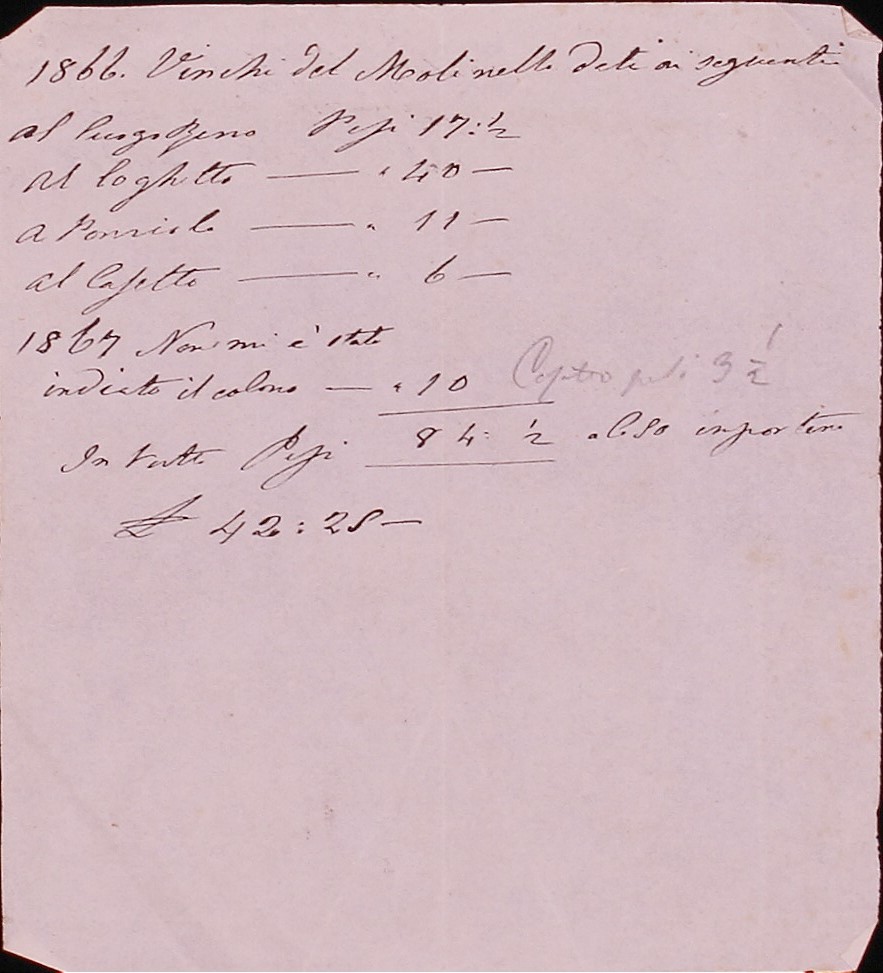 1866. Vinchi del Molinello dati ai seguenti
al Lungo Reno Pesi 17:½
Al Loghetto — " 40 —
a Ponziolo — " 11 —
al Casetto — " 6 —
1867 Non mi è stato
indicato il colono — " 10 Casetto pesi 3 ½
In tutto Pesi 84: ½ a C. 50 importano
£ 42:25 —